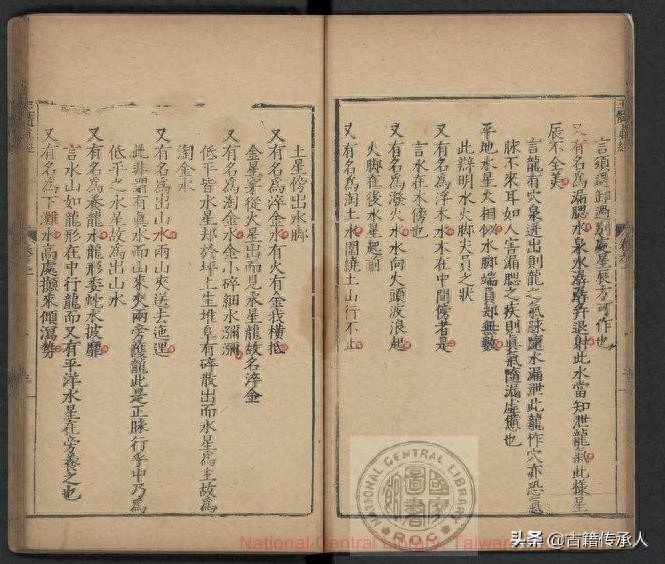 言須還卸過別處星辰方可作也
又有名為漏腮水泉水
射此水當知泄龍氣此樣星
辰不全美
言龍有穴泉迸出則龍之氣脉隨水漏泄此龍作穴亦恐氣
脉不來耳如人害漏腮之疾則真氣隨漏虛憊也
平地水星火相似水脚端員却無數
此辯明水火脚尖員之狀
又有名為濟木水木在中間傍者是
言水在木傍也
又有名為潑火水水向火頭波浪起
火脚在後水星起前
又有名為淘土水圍繞土山行不止
土星傍出水脚
又有名為淬金水有火有金我橫抵
金星穿從火星出而見水星龍故名淬金
又有名為淘金水金小碎細水瀰瀰
低平皆水星却於坪上生堆阜有碎散出而水星為主故為
淘金水
又有名為出山水兩山夾送去迤邐
此非謂有真水而山來夾兩旁護龍此是正脉行乎中乃為
低平之水星故為出山水
又有名為養龍水龍形委蛇水披靡
言水山如龍形在中行龍而又有平洋水星在旁養之也
又有名為下灘水高處擷來傾瀉勢
National Central Library, Taiwan
NATIONAL CENTRAL LIBRARY
ROC
國家圖書館
头条 @古籍传承人